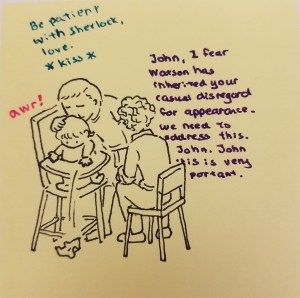 Be patient
with Sherlock,
love.
*kiss*
awr!
John, I fear
Watson has
inherited your
casual disregard
for appearance.
we need to
address this.
John. John
this is very
portant.